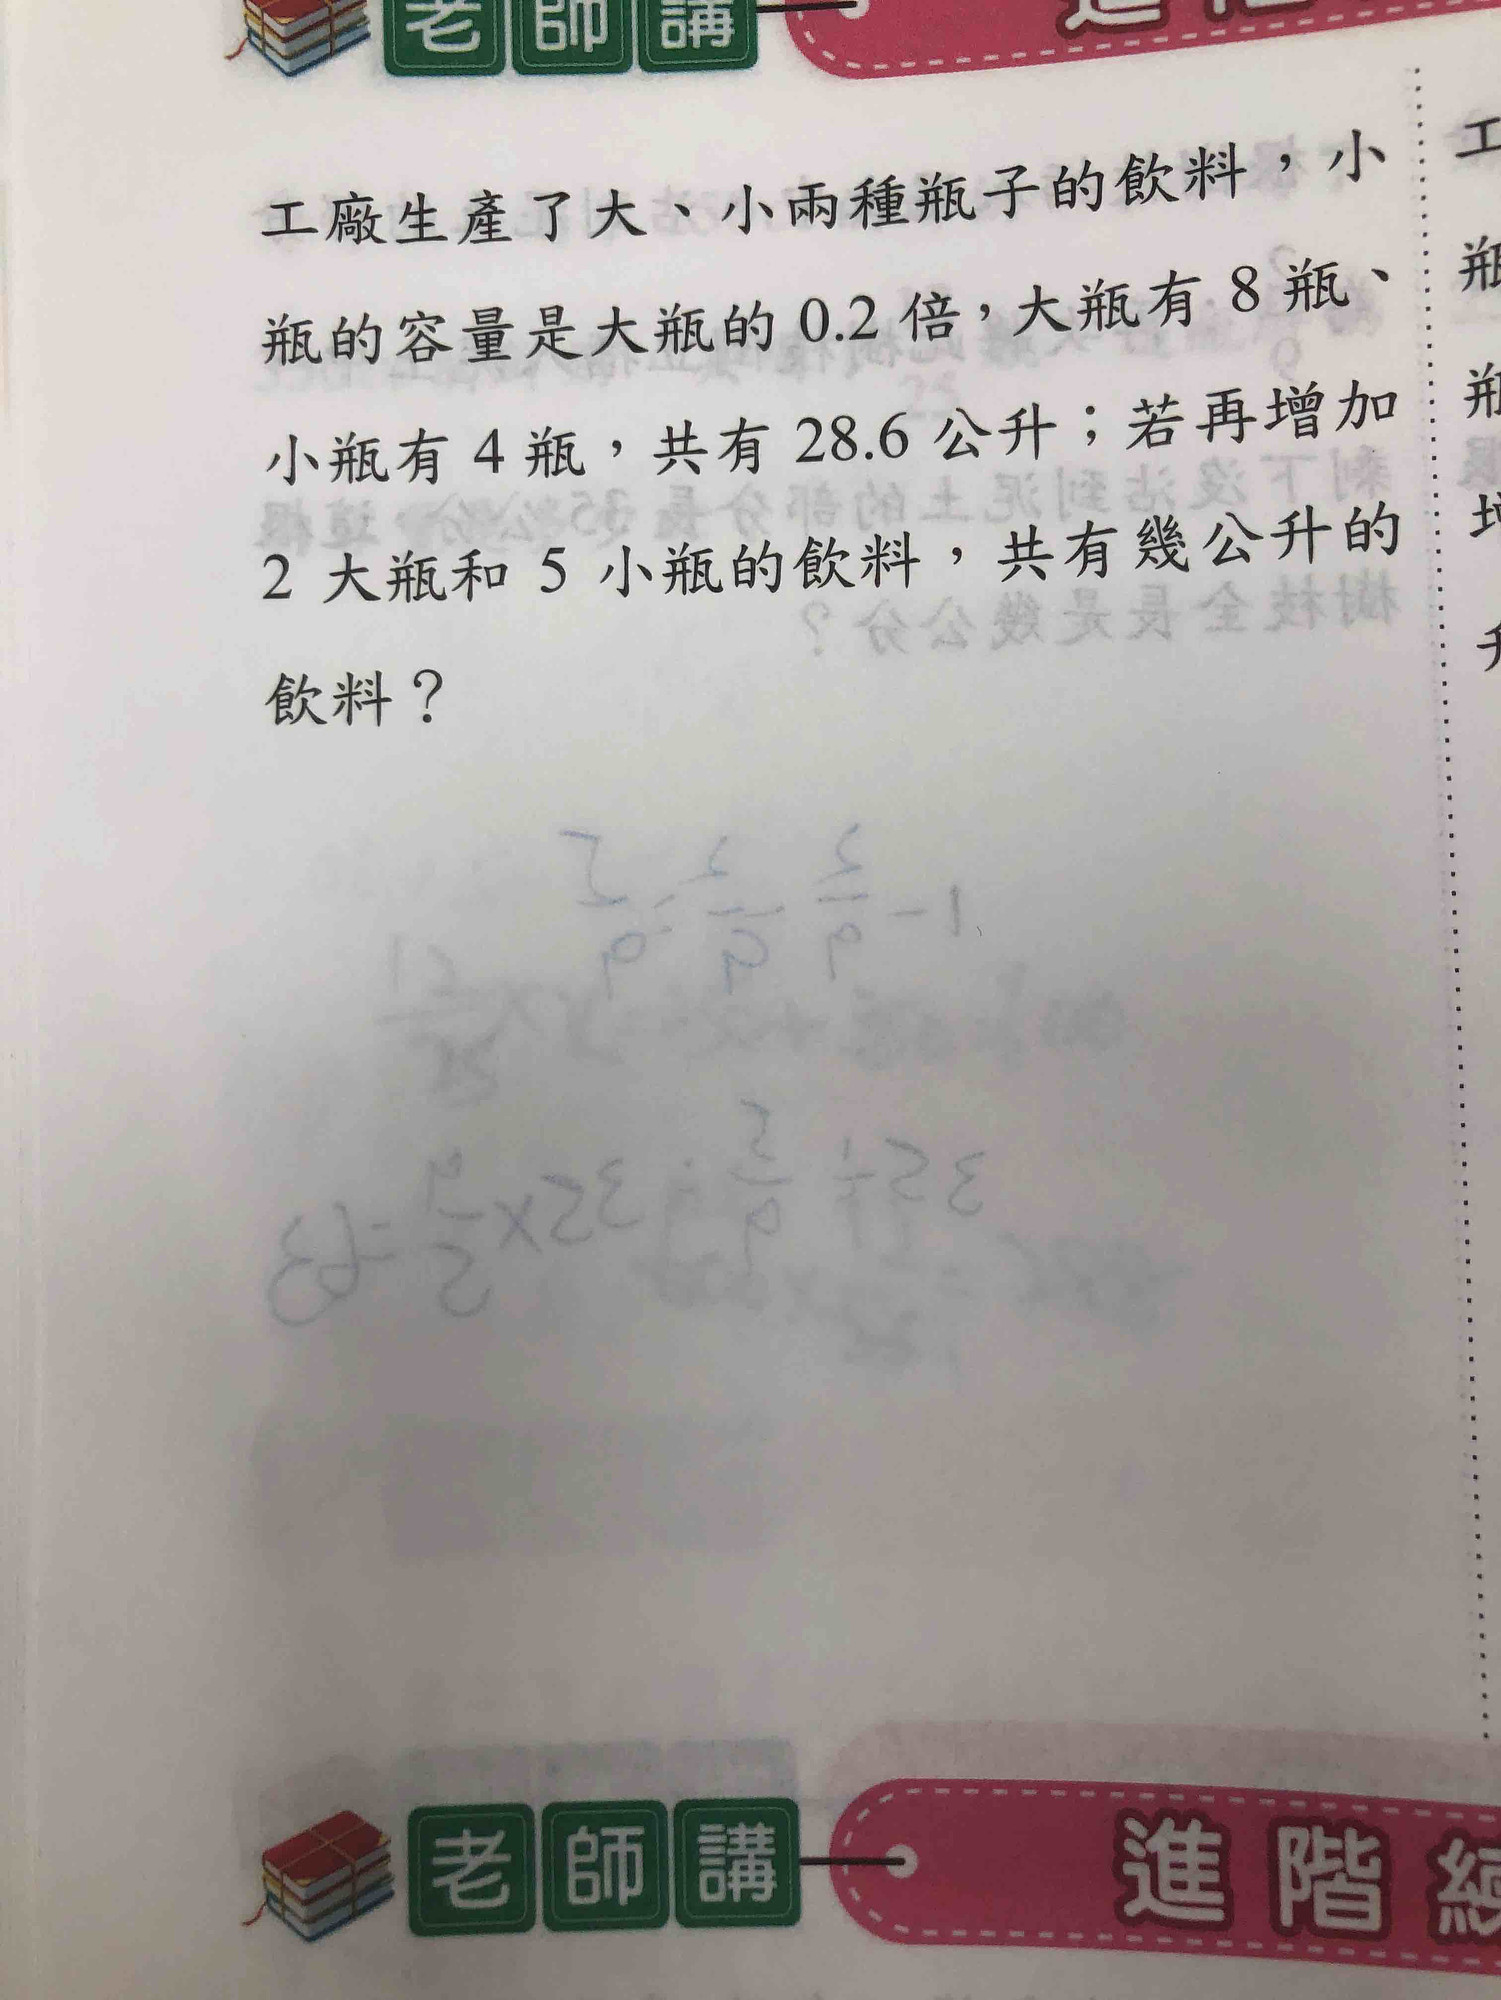 老師講
工廠生產了大、小兩種瓶子的飲料，小
瓶的容量是大瓶的 0.2 倍，大瓶有 8 瓶、
小瓶有 4 瓶，共有 28.6 公升；若再增加
2 大瓶和 5 小瓶的飲料，共有幾公升的
飲料？
老師講 進階練